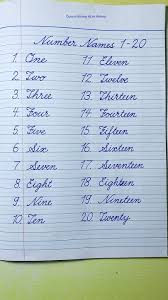 Number Names 1-20
1. One 11. Eleven
2. Two 12. Twelve
3. Three 13. Thirteen
4. Four 14. Fourteen
5. Five 15. Fifteen
6. Six 16. Sixteen
7. Seven 17. Seventeen
8. Eight 18. Eighteen
9. Nine 19. Nineteen
10. Ten 20. Twenty